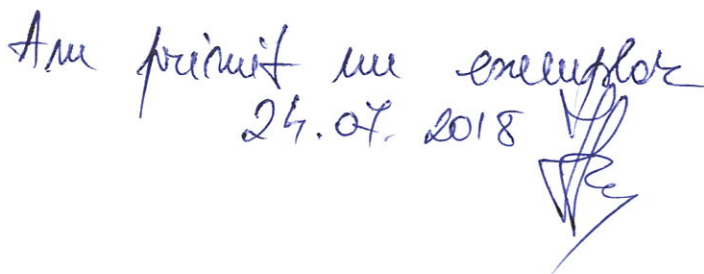 Am primit un exemplar
24.07. 2018